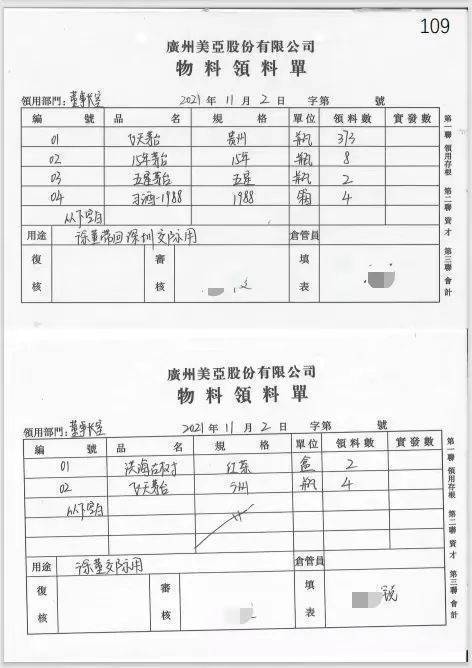 109
廣州美亞股份有限公司
物料領料單
領用部門：董事长室 2021年11月2日 字第 號
編號 品名 規格 單位 領料數 實發數
01 飞天茅台 贵州 瓶 373
02 15年茅台 15年 瓶 8
03 五星茅台 五星 瓶 2
04 习酒-1988 1988 箱 4
以下空白
用途 徐董带回深圳交际用 倉管員
復核 審核 填表
第一聯 領用存根 第二聯 資才 第三聯 會計
廣州美亞股份有限公司
物料領料單
領用部門：董事长室 2021年11月2日 字第 號
編號 品名 規格 單位 領料數 實發數
01 滇海古树 红 盒 2
02 飞天茅台 贵州 瓶 4
以下空白
用途 徐董交际用 倉管員
復核 審核 填表
第一聯 領用存根 第二聯 資才 第三聯 會計